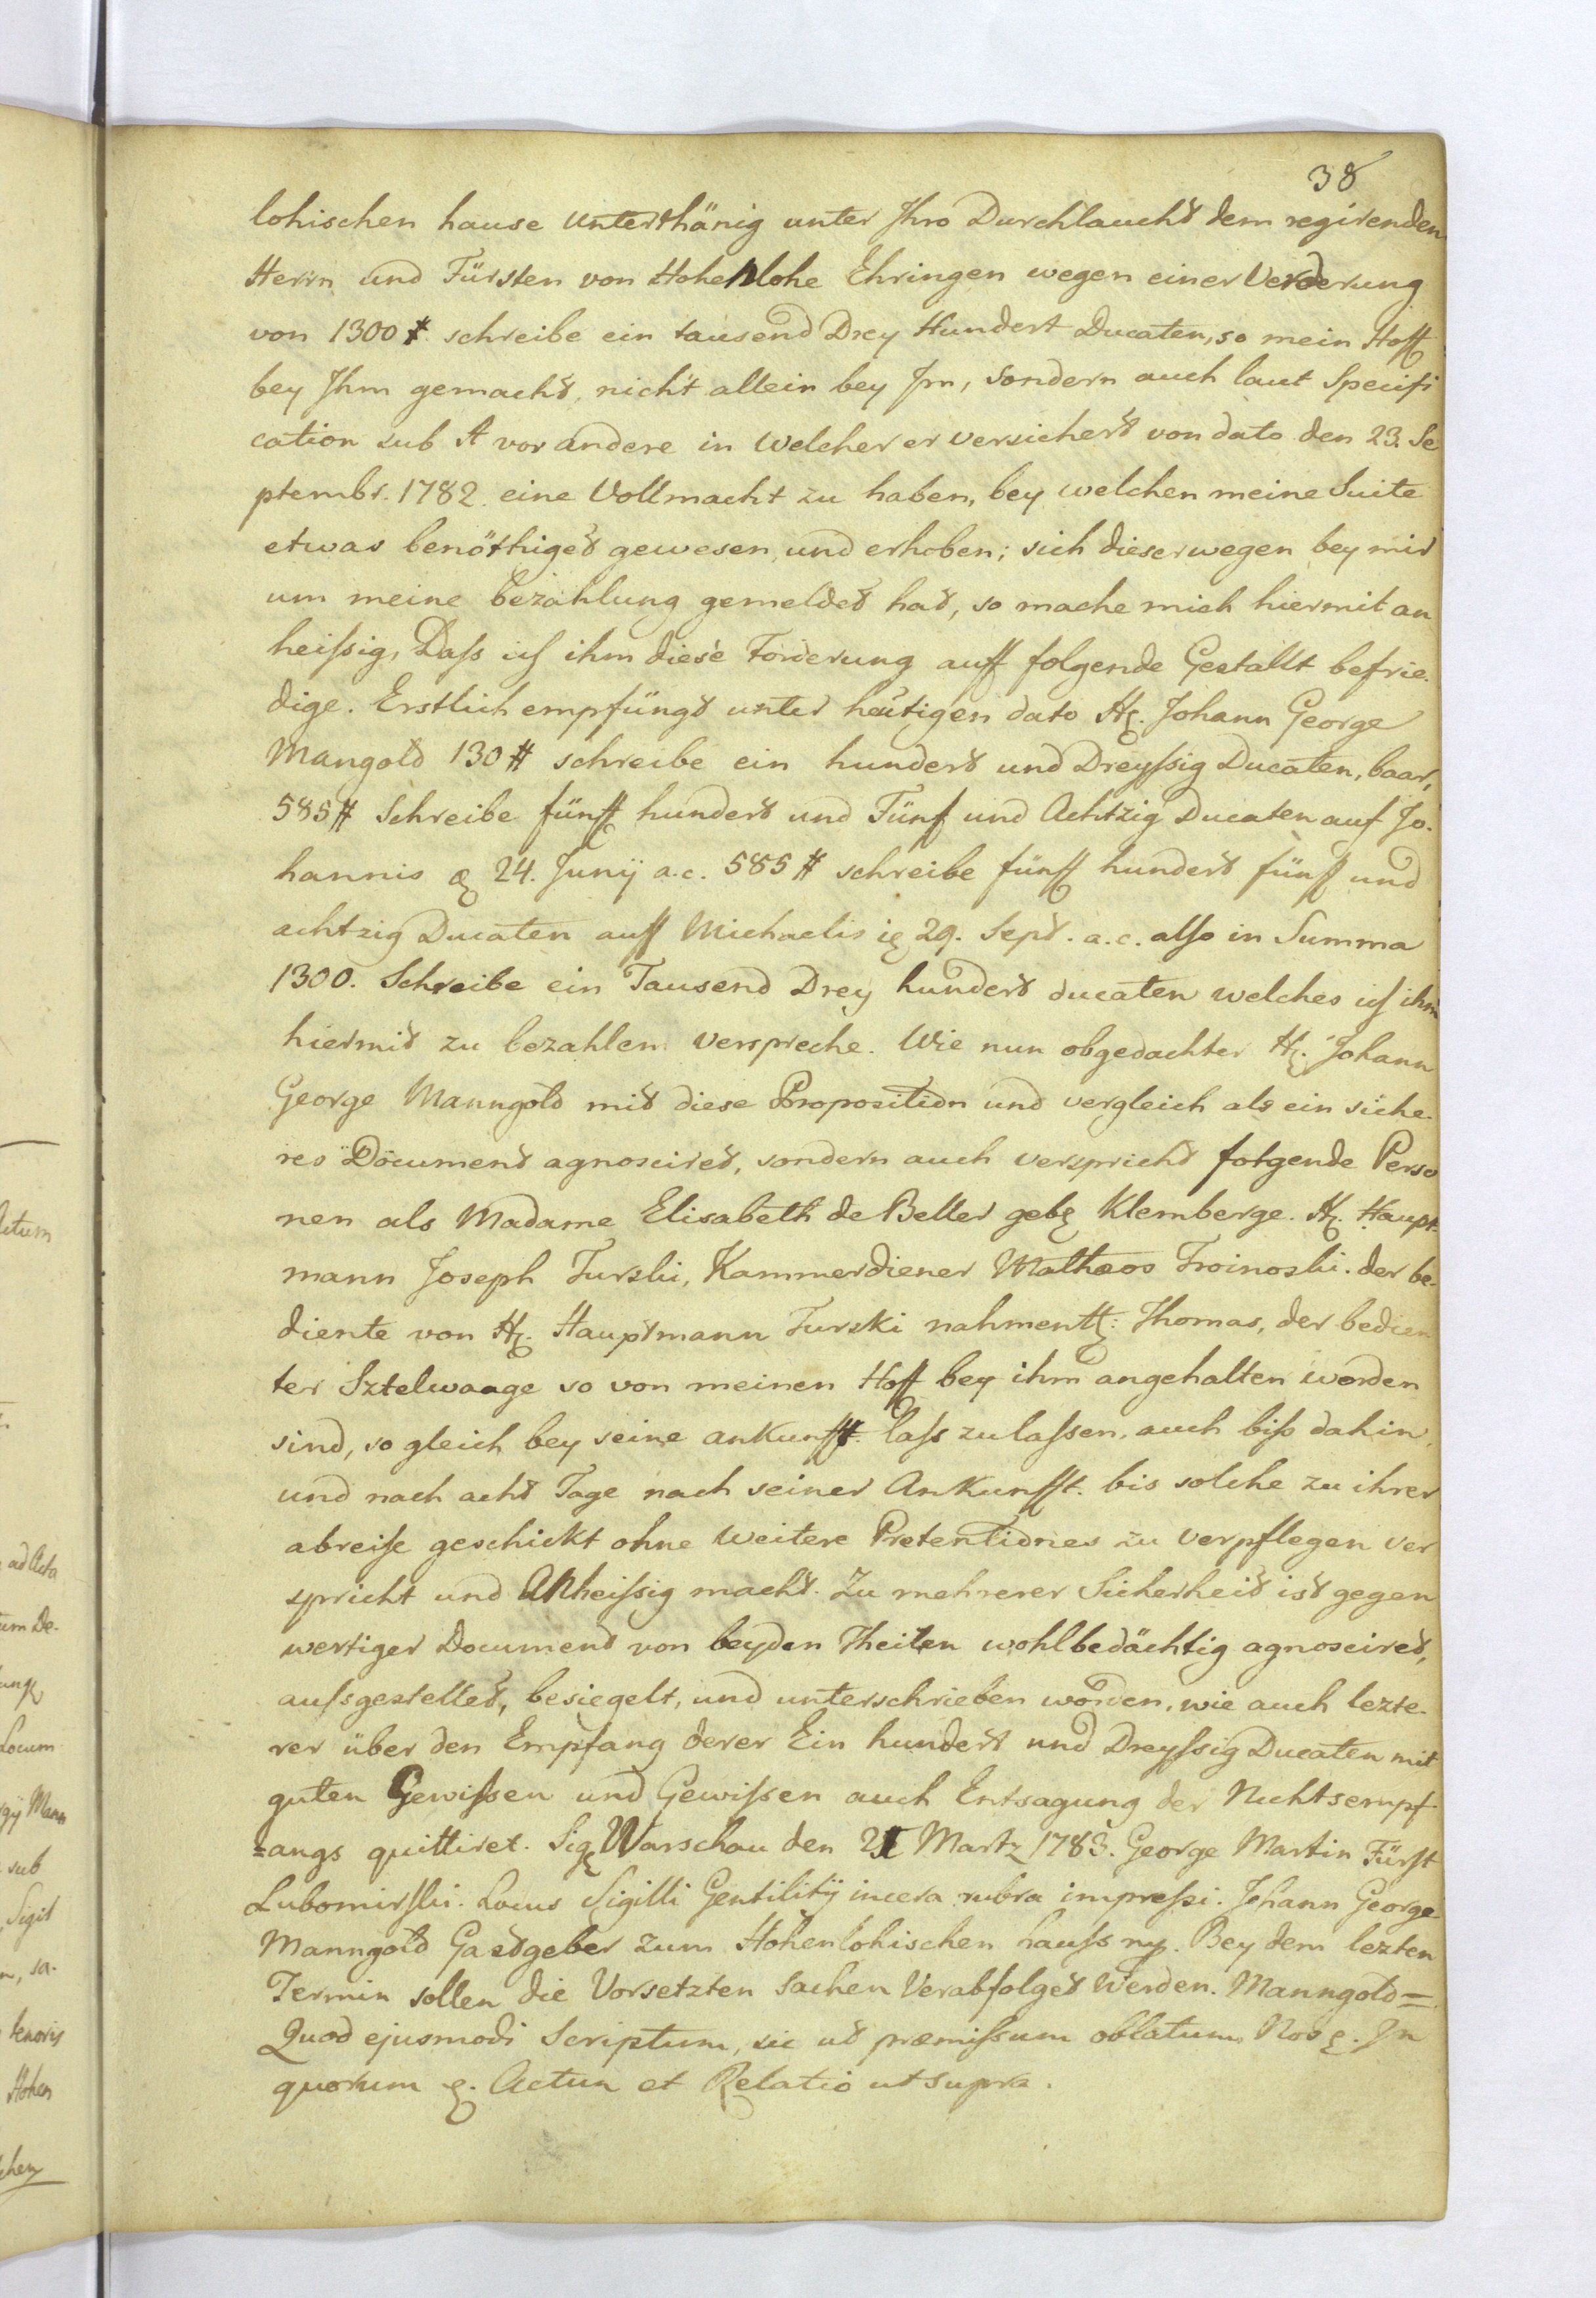 38
lohischen hause unterthänig unter Jhro Durchlaucht dem regirenden
Herrn und Fürsten von Hohenlohe Ehringen wegen einer Verderung
von 1300 # schreibe ein tausend Drey Hundert Ducaten, so mein Hoff
bey Jhm gemacht, nicht allein bey Jm, sondern auch laut Specifi
cation sub A vor andere in welcher er versichert von dato den 23. Se
ptembr. 1782. eine Vollmacht zu haben, bey welchen meine Suite
etwas benöthiget gewesen, und erhoben; sich dieserwegen bey mir
um meine bezahlung gemeldet hat, so mache mich hiermit an
heißig, Daß ich ihm diese Forderung auff folgende Gestallt befrie-
dige. Erstlich empfüngt unter heütigen dato H. Johann George
Mangold 130 # schreibe ein hundert und Dreyßig Ducaten, baar,
585 # Schreibe fünff hundert und Fünf und Achtzig Ducaten auf Jo-
hannis 24. Junij a.c. 585 # schreibe fünff hundert fünff und
achtzig Ducaten auff Michaelis 29. Sept. a.c. also in Summa
1300. Schreibe ein Tausend Drey hundert ducaten welches ich ihm
hiermit zu bezahlen verspreche. Wie nun obgedachter H. Johann
George Manngold mit diese Proposition und vergleich als ein siche-
res Document agnosciret, sondern auch verspricht folgende Perso
nen als Madame Elisabeth de Beller geb Klemberge. H. Haupt-
mann Joseph Turski, Kammerdiener Mathaeos Troinoski. der be-
diente von H. Hauptmann Turski nahmentl: Thomas, der bedien
ter Sztelwaage so von meinen Hoff bey ihm angehalten worden
sind, so gleich bey seine ankunfft. laß zulaßen, auch biß dahin,
und nach acht Tage nach seiner Ankunfft. bis solche zu ihrer
abreise geschickt ohne weitere Pretentiones zu verpflegen ver
spricht und Anheißig macht. Zu mehrerer Sicherheit ist gegen
wertiger Document von beyden Theilen wohlbedächtig agnosciret,
außgestellet, besiegelt, und unterschrieben worden, wie auch lezte-
rer über den Empfang derer Ein hundert und Dreyßig Ducaten mit
guten Gewißen und Gewißen auch Entsagung der Nichtsempf-
=angs quittiret. Sig Warschau den Martz 1783. George Martin Fürst
Lubomirski. Locus Sigilli Gentilitij incera rubra impreßi. Johann George
Manngold Gastgeber zum Hohenlohischen hauß mp. Bey dem lezten
Termin sollen die Vorsetzten sachen Verabfolget Werden. Manngold=
Quod ejusmodi Scriptum, sic ut præmißum oblatum Nos. Jn
quorum. Actum et Relatio ut supra.